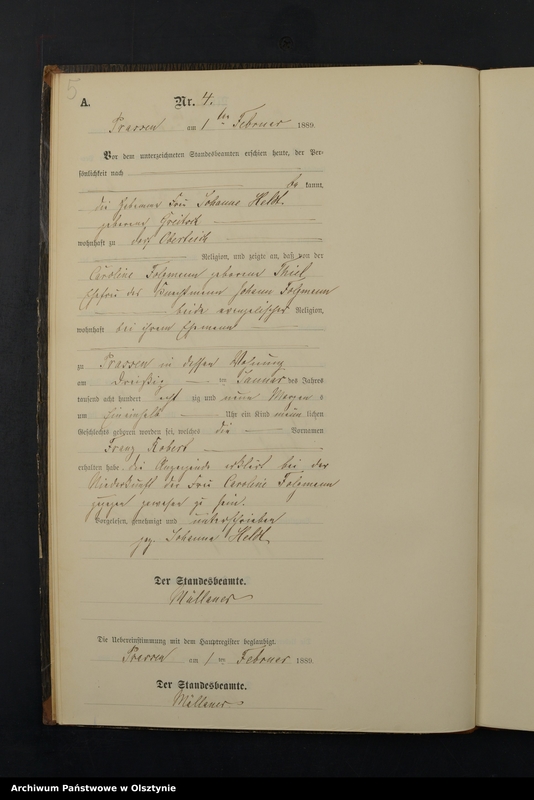 5
A.
Nr. 4.
Prassen am 1ten Februar 1889.
Vor dem unterzeichneten Standesbeamten erschien heute, der Per-
sönlichkeit nach
be kannt,
die Hebamme Frau Johanna Heldt
geborene
wohnhaft zu Oberteich
Religion, und zeigte an, daß von der
Caroline Folgmann geborene Thiel
Ehefrau des Johann Folgmann
beide evangelischer Religion,
wohnhaft bei ihrem Ehemann
zu Prassen in dessen Wohnung
am Dreißig ten Januar des Jahres
tausend acht hundert acht zig und neun Morgens
um Uhr ein Kind männ lichen
Geschlechts geboren worden sei, welches die Vornamen
Franz Robert
erhalten habe. die Anzeigende erklärt bei der
Niederkunft der Frau Caroline Folgmann
zugegen gewesen zu sein.
Vorgelesen, genehmigt und unterschrieben
gez. Johanna Heldt
Der Standesbeamte.
Die Uebereinstimmung mit dem Hauptregister beglaubigt.
Prassen am 1 ten Februar 1889.
Der Standesbeamte.
Archiwum Państwowe w Olsztynie